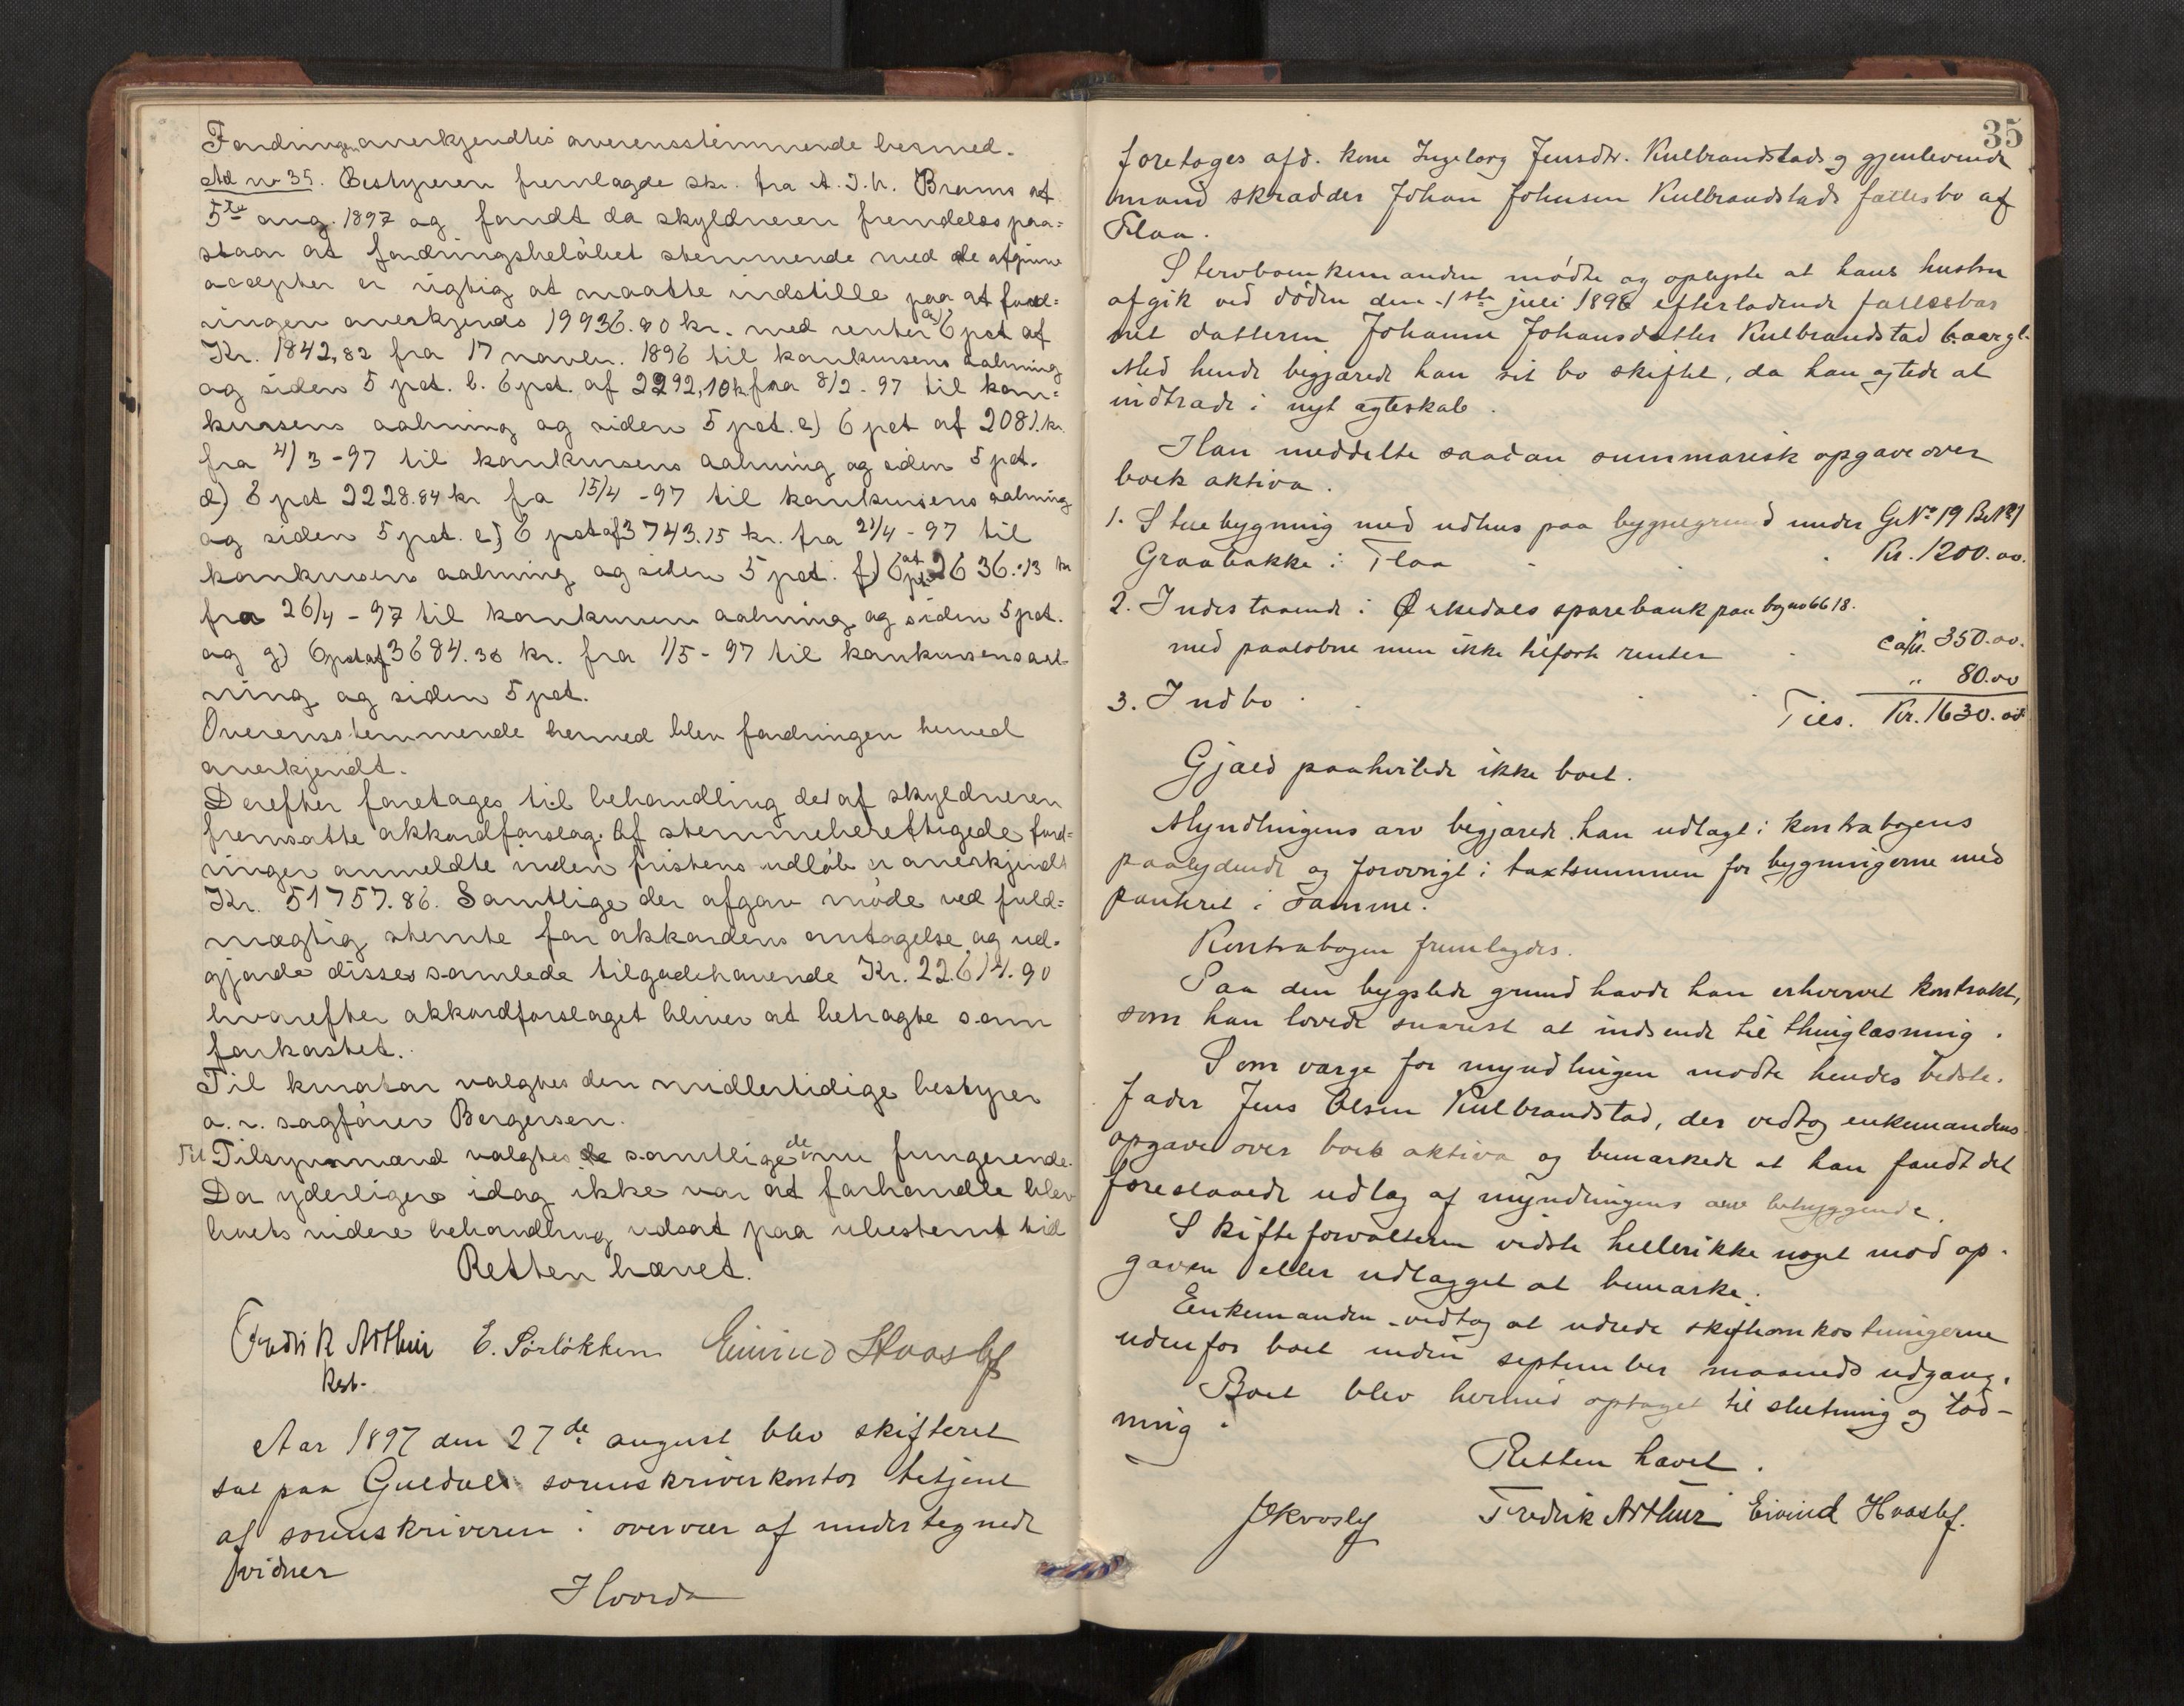 Fordringen anerkjendtes overensstemmende hermed.
Ad no 35. Bestyreren fremlagde skr. fra A. J. h. Brams af
5te aug. 1897 og fandt da skyldneren fremdeles paa=
staar at fordringsbeløbet stemmende med de afgivne
accepter er rigtig at maatte indstille paa at ford=
ringen anerkjends 19936.80 kr. med renter a) 6 pct af
Kr. 1842,82 fra 17 novbr. 1896 til konkursens aabning
og siden 5 pct. b. 6 pct. af 2292,10 k fra 8/2-97 til kon=
kursens aabning og siden 5 pct. c) 6 pct af 2081. kr.
fra 4/3-97 til konkursens aabning og siden 5 pct.
d) 6 pct 2228.84 kr fa 15/4-97 til konkursens aabning
og siden 5 pct. e) 6 pct af 3743.15 kr. fra 21/4-97 til
konkursens aabning og siden 5 pct. f) 6 pct af 2636.13 kr
fra 26/4-97 til konkursens aabning og siden 5 pct.
og g) 6 pct af 3684.38 kr. fra 1/5-97 til konkursens aab-
ning og siden 5 pct.
Overensstemmende hermed blev fordringen herved
anerkjendt.
Derefter foretages til behandling det af skyldneren
fremsatte akkordforslag. Af stemmeberettigede ford=
ringer anmeldte inden fristens udløb er anerkjendt
Kr. 51757.86. Samtlige der afgav møde ved fuld=
mægtig stemte for akkordens antagelse og ud-
gjorde disses samlede tilgodehavende Kr. 22614.90
hvorefter akkordforslaget bliver at betragte som
forkastet.
Til kurator valgtes den midlertidige bestyrer
o. r. sagfører Bergersen.
Til Tilsynsmænd valgtes samtlige de nu fungerende.
Da yderligere idag ikke var at forhandle blev
boets videre behandling udsat paa ubestemt tid
Retten hævet.
Fredrik Arthur E. Sørløkken Eivind Hvoslef
Kst.
Aar 1897 den 27de august blev skifteret
sat paa Guldals sorenskriverkontor betjent
af sorenskriveren i overvær af undertegnede
vidner
Hvorda
35
foretages afd. kone Ingeborg Jensdtr. Kulbrandstads og gjenlevende
mand skrædder Johan Johnsen Kulbrandstads fællesbo af
Flaa.
Stervboenkemanden mødte og oplyste at hans hustru
afgik ved døden den 1ste juli 1896 efterladende fællesbarnet
datteren Johanne Johansdatter Kulbrandstad 6 aar gl.
Med hende begjærede han sit bo skiftet, da han agtede at
indtræde i nyt ægteskab.
Han meddelte saadan summarisk opgave over
boets aktiva.
1. Stuebygning med udhus paa bygselgrund under G.No 19 B.No 1
Graabakke i Flaa Kr. 1200.00.
2. Indestaaende i Ørkedals sparebank paa bog no 6618.
med paaløbne men ikke tilførte renter ca Kr. 350.00.
3. Indbo " 80.00
Tils. Kr. 1630.00
Gjæld paahvilede ikke boet.
Myndlingens arv begjærede han udlagt i kontrabogens
paalydende og forøvrigt i taxtsummen for bygningerne med
panteret i samme.
Kontrabogen fremlagdes.
Paa den bygslede grund havde han erhvervet kontrakt,
som han lovede snarest at indsende til thinglæsning.
Som værge for myndlingen mødte hendes bedste-
fader Jens Olsen Kulbrandstad, der vedtog enkemandens
opgave over boets aktiva og bemærkede at han fandt det
foreslaaede udlæg af myndlingens arv betryggende.
Skifteforvalteren vidste hellerikke noget mod op-
gaven eller udlægget at bemærke.
Enkemanden vedtog at udrede skifteomkostningerne
udenfor boet inden september maaneds udgang.
Boet blev hermed optaget til slutning og lod-
ning.
Retten hævet.
JHvoslef Fredrik Arthur Eivind Hvoslef.